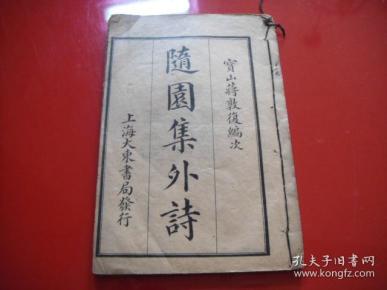 寳山蔣敦復編次
隨園集外詩
上海大東書局發行
孔夫子旧书网
www.kongfz.com